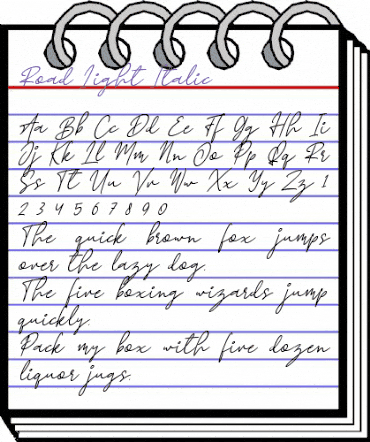 Road Light Italic
Aa Bb Cc Dd Ee Ff Gg Hh Ii
Jj Kk Ll Mm Nn Oo Pp Qq Rr
Ss Tt Uu Vv Ww Xx Yy Zz 1
2 3 4 5 6 7 8 9 0
The quick brown fox jumps
over the lazy dog.
The five boxing wizards jump
quickly.
Pack my box with five dozen
liquor jugs.